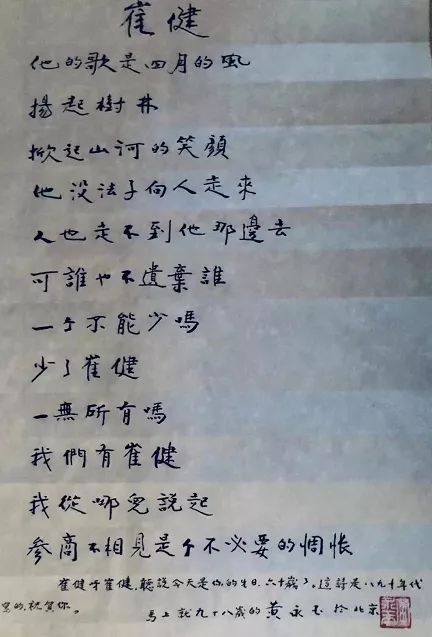 崔健
他的歌是四月的風
揚起樹林
掀起山河的笑顔
他没法子向人走來
人也走不到他那邊去
可誰也不遺棄誰
一个不能少嗎
少了崔健
一無所有嗎
我們有崔健
我從哪兒說起
參商不相見是个不必要的惆悵
崔健呀崔健，聽說今天是你的生日，六十歲了。這詩是八九十年代
寫的，祝賀你。
馬上就九十八歲的黃永玉於北京